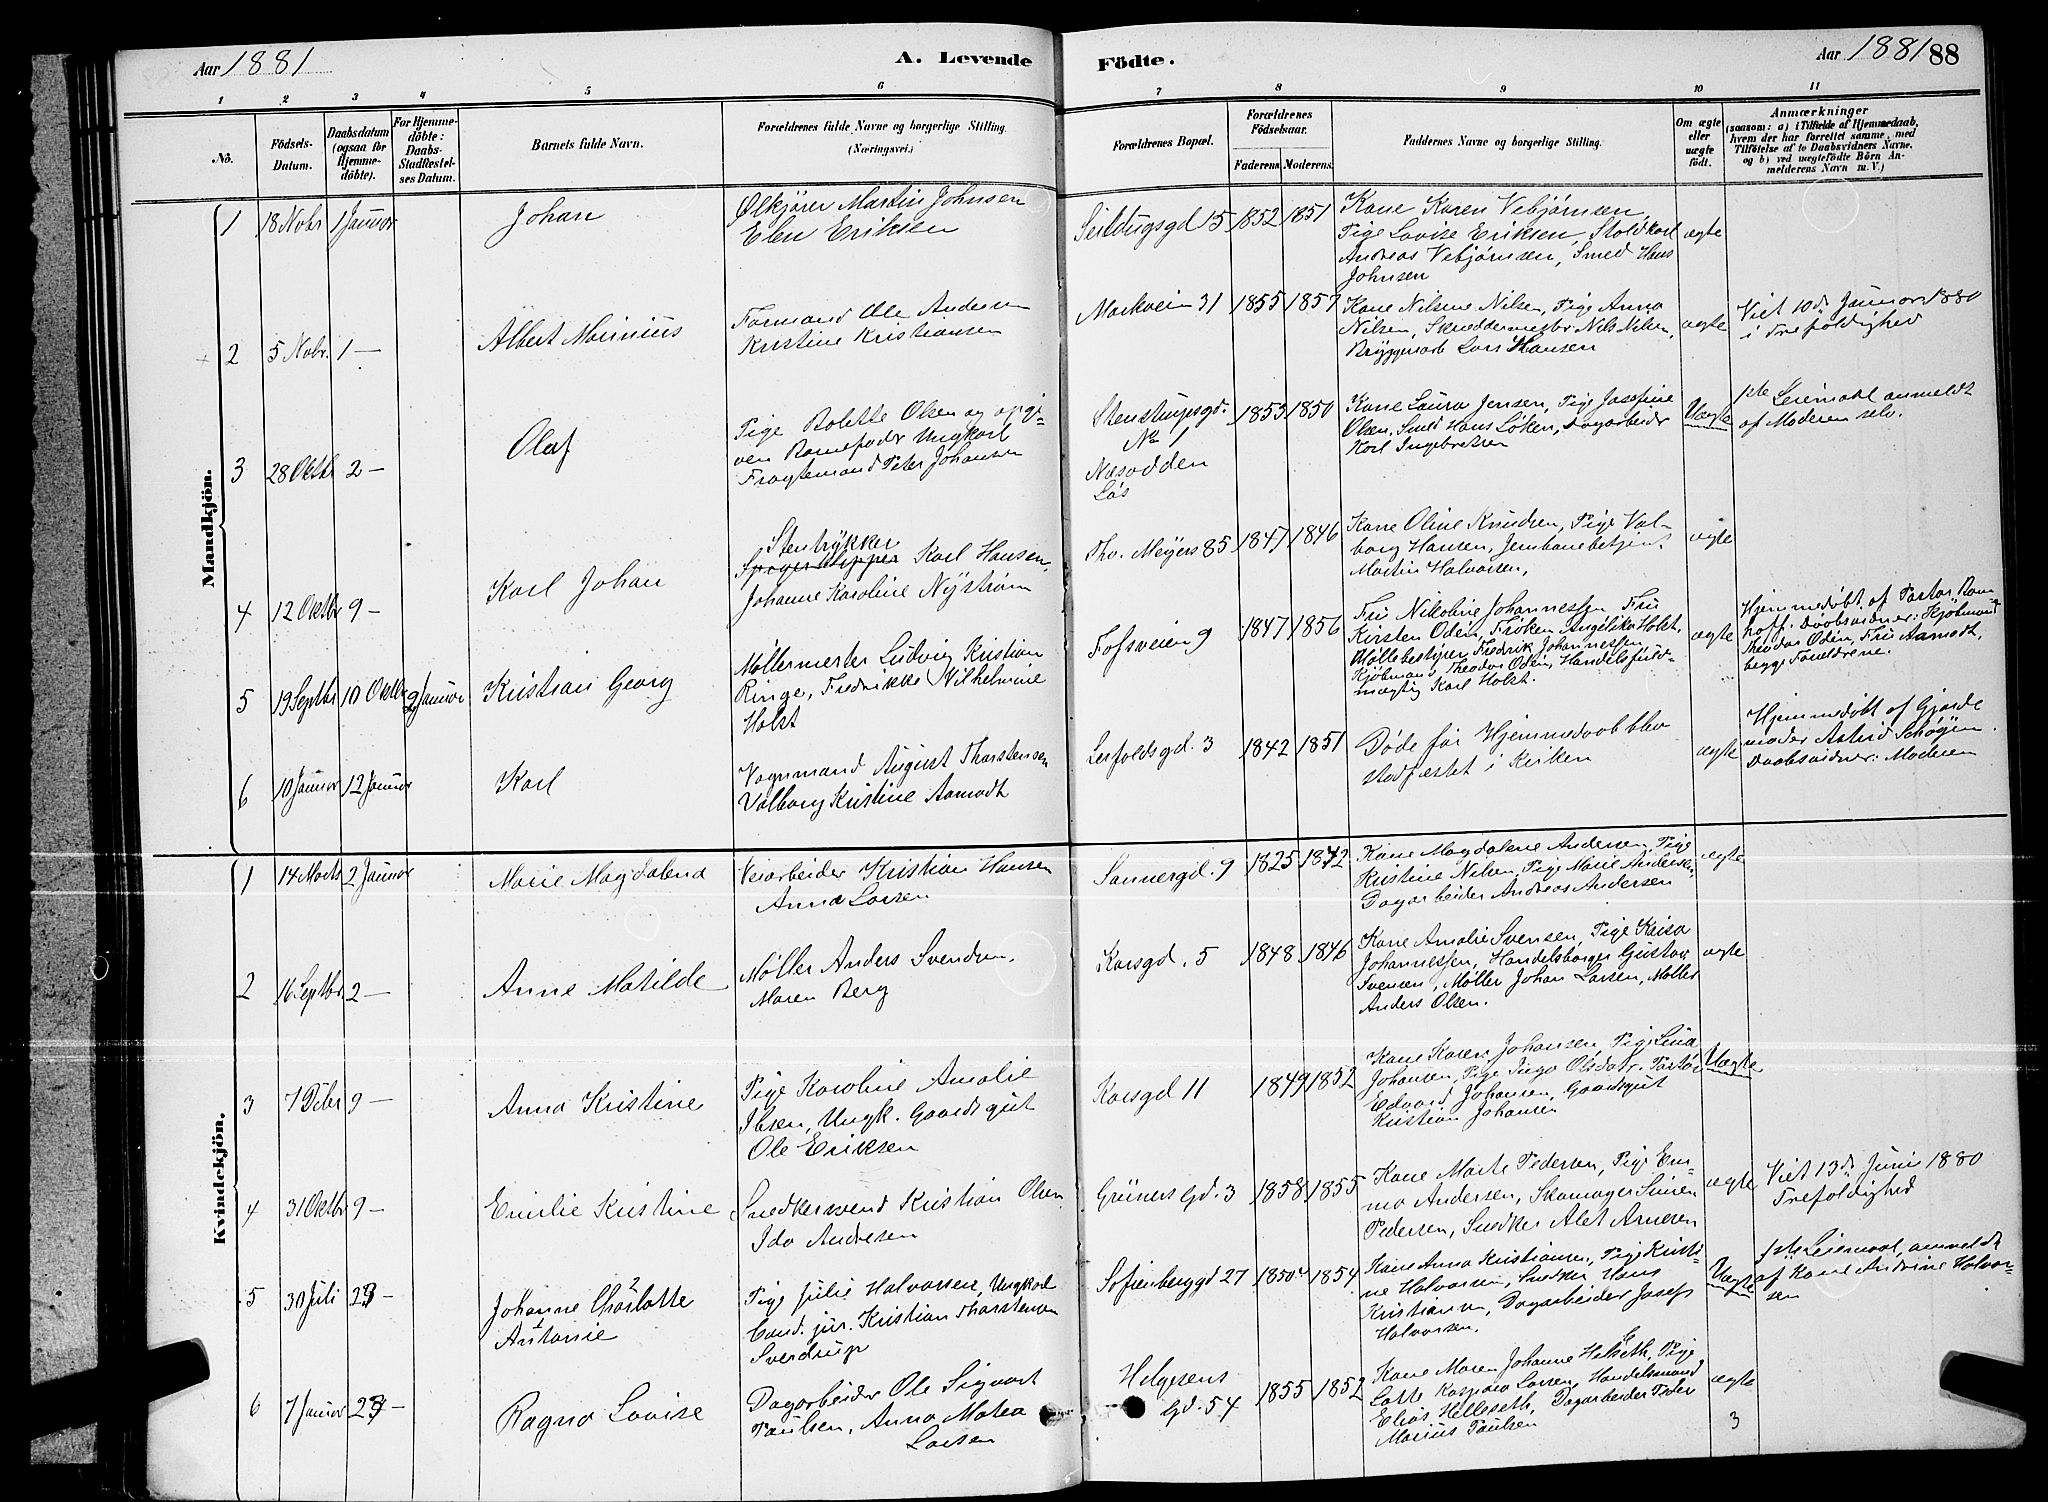 Aar 1881
A. Levende
Födte.
Aar 1881 88
1 2 3 4 5 6 7 8 9 10 11
No.
Födsels-
Datum.
Daabsdatum
(ogsaa for
Hjemme-
döbte).
For Hjemme-
döbte:
Daabs-
Stadfæstel-
ses Datum.
Barnets fulde Navn.
Forældrenes fulde Navne og borgerlige Stilling.
(Næringsvei.)
Forældrenes Bopæl.
Forældrenes
Födselsaar.
Faderens. Moderens.
Faddernes Navne og borgerlige Stilling.
Om ægte
eller
uægte
födt.
Anmærkninger
(saasom: a) i Tilfælde af Hjemmedaab,
hvem der har forrettet samme, med
Tilföielse af to Daabsvidners Navne,
og b) ved uægtefödte Börn An-
melderens Navn m. V.)
Mandkjön.
1 18 Nobr 1 Januar
Johan
Ølkjører Martin Johnsen
Elen Eriksen
Seildugsgd 15 1852 1851
Kone Karen Vebjørnsen,
Pige Lovise Eriksen, Stoldkarl
Andreas Vebjørnsen, Smed Hans
Johnsen
ægte
2 5 Nobr. 1 —
Albert Marinius
Formand Ole Andersen
Kristine Kristiansen
Markveien 31 1855 1857
Kone Nilsine Nilsen, Pige Anna
Nilsen, Skreddermester Nils Nilsen,
Bryggeriarb Lars Hansen
ægte
Viet 10de Januar 1880
i Trefoldighed
3 28 Oktbr 2 —
Olaf
Pige Bolette Olsen og opgi-
ven Barnefader Ungkarl
Fragtemand Peter Johansen
Stenstrupsgd.
No 1
Næsodden
Løs
1853 1850
Kone Laura Jensen, Pige Josefine
Olsen, Smed Hans Løken, Dagarbeider
Karl Ingebretsen
Uægte
1ste Leiermaal anmeldt
af Moderen selv.
4 12 Oktbr 9 —
Karl Johan
Stentrykker
Karl Hansen,
Johanne Karoline Nystrøm
Thv. Meyers 85 1847 1846
Kone Oline Knudsen, Pige Val-
borg Hansen, Jernbanebetjent
Martin Halvorsen,
ægte
5 19 Septbr 10 Oktbr 2 Januar
Kristian Georg
Møllermester Ludvig Kristian
Ringe, Fredrikke Vilhelmine
Holst
Fossveien 9 1847 1856
Fru Nikoline Johannessen, Fru
Kirsten Odén, Frøken Angelika Holst,
Møllebestyrer Fredrik Johannessen
Kjøbmand Theodor Odén, Handelsfuld-
mægtig Karl Holst.
ægte
Hjemmedøbt af Pastor Bom-
hoff. Daabsvidner: Kjøbmand
Theodor Odén, Fru Aamodt,
begge Forældrene.
6 10 Januar 12 Januar
Karl
Vognmand August Thorstensen
Valborg Kristine Aamodt
Leifoldsgd. 3 1842 1851
Døde før Hjemmedaab blev
stadfæstet i Kirken
ægte
Hjemmedøbt af Gjorde-
moder Astrid Schøyen.
Daabsvidner: Moderen
Kvindekjön.
1 14 Marts 2 Januar
Marie Magdalena
Veiarbeider Kristian Hansen
Anna Larsen
Sannergd. 9 1825 1842
Kone Magdalene Andersen, Pige
Kristine Nilsen, Pige Marie Andersen,
Dagarbeider Andreas Andersen
ægte
2 16 Septbr. 2 —
Anne Matilde
Møller Anders Svendsen,
Maren Berg
Korsgd. 5 1848 1846
Kone Amalie Svensen, Pige Kaisa
Johannessen, Handelsborger Gustav
Svensen, Møller Johan Larsen, Møller
Anders Olsen.
ægte
3 7 Dcbr 9 —
Anna Kristine
Pige Karoline Amalie
Ibsen, Ungk. Gaardsgut
Ole Eriksen
Korsgd 11 1849 1852
Kone Karen Johansen, Pige Lina
Johansen, Pige Inga Olsdatr.
Edvard Johansen, Gaardsgut
Kristian Johansen
Uægte
4 31 Oktbr 9 —
Emilie Kristine
Snedkersvend Kristian Olsen
Ida Andresen
Grüners Gd. 3 1858 1855
Kone Marte Pedersen, Pige Em-
ma Andersen, Skomager Simen
Pedersen, Snedker Alet Arnesen
ægte
Viet 13de Juni 1880
Trefoldighed
5 30 Juli 23 —
Johanne Charlotte
Antonie
Pige Julie Halvorsen, Ungkarl
Cand. jur. Kristian Thorstensen
Sverdrup
Sofienberggd 27 1850 1854
Kone Anna Kristiansen, Pige Kristi-
ne Halvorsen, Snedker Hans
Kristiansen, Dagarbeider Josef
Halvorsen.
Uægte
1ste Leiermaal, anmeldt
af Kone Andrine Halvor-
sen
6 7 Januar 23 —
Ragna Lovise
Dagarbeider Ole Sigvart
Paulsen, Anna Matea
Larsen
Helgesens
Gd. 54 1855 1852
Kone Maren Johanne Helseth, Pige
Lotte Kaspara Larsen, Handelsmand
Elias Helleseth, Dagarbeider Peder
Marius Paulsen
ægte
3